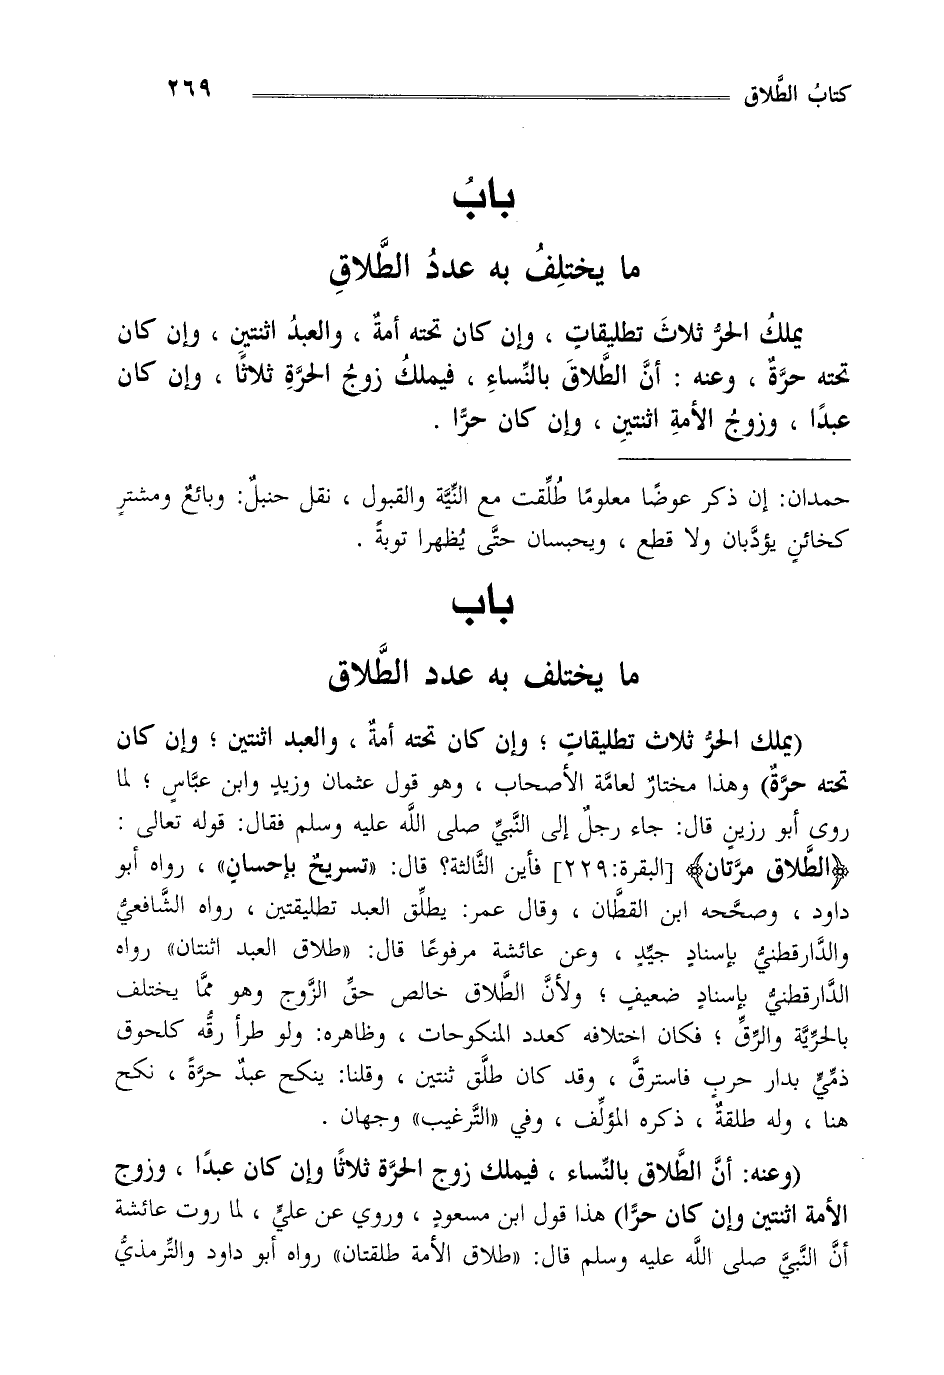 كتابُ الطَّلاق ٢٦٩
بابُ
ما يختلِفُ به عددُ الطَّلاقِ
يملكُ الحرُّ ثلاثَ تطليقاتٍ ، وإن كان تحته أمةٌ ، والعبدُ اثنتينِ ، وإن كان
تحته حرَّةٌ ، وعنه : أنَّ الطَّلاقَ بالنِّساءِ ، فيملكُ زوجُ الحرَّةِ ثلاثًا ، وإن كان
عبدًا ، وزوجُ الأمةِ اثنتينِ ، وإن كان حرًّا .
حمدان: إن ذكر عوضًا معلومًا طُلِّقت مع النِّيَّة والقبول ، نقل حنبلٌ: وبائعٌ ومشترٍ
كخائنٍ يؤدَّبان ولا قطع ، ويحبسان حتَّى يُظهرا توبةً .
باب
ما يختلف به عدد الطَّلاق
(يملك الحرُّ ثلاث تطليقاتٍ ؛ وإن كان تحته أمةٌ ، والعبد اثنتين ؛ وإن كان
تحته حرَّةٌ) وهذا مختارٌ لعامَّة الأصحاب ، وهو قول عثمان وزيدٍ وابن عبَّاسٍ ؛ لما
روى أبو رزينٍ قال: جاء رجلٌ إلى النَّبيِّ صلى اللَّه عليه وسلم فقال: قوله تعالى :
﴿الطَّلاق مرَّتان﴾ [البقرة:٢٢٩] فأين الثَّالثة؟ قال: «تسريحٌ بإحسانٍ» ، رواه أبو
داود ، وصحَّحه ابن القطَّان ، وقال عمر: يطلِّق العبد تطليقتين ، رواه الشَّافعيُّ
والدَّارقطنيُّ بإسنادٍ جيِّدٍ ، وعن عائشة مرفوعًا قال: «طلاق العبد اثنتان» رواه
الدَّارقطنيُّ بإسنادٍ ضعيفٍ ؛ ولأنَّ الطَّلاق خالص حقِّ الزَّوج وهو ممَّا يختلف
بالحرِّيَّة والرِّقِّ ؛ فكان اختلافه كعدد المنكوحات ، وظاهره: ولو طرأ رقُّه كلحوق
ذمِّيٍّ بدار حربٍ فاسترقَّ ، وقد كان طلَّق ثنتين ، وقلنا: ينكح عبدٌ حرَّةً ، نكح
هنا ، وله طلقةٌ ، ذكره المؤلِّف ، وفي «التَّرغيب» وجهان .
(وعنه: أنَّ الطَّلاق بالنِّساء ، فيملك زوج الحرَّة ثلاثًا وإن كان عبدًا ، وزوج
الأمة اثنتين وإن كان حرًّا) هذا قول ابن مسعودٍ ، وروي عن عليٍّ ، لما روت عائشة
أنَّ النَّبيَّ صلى اللَّه عليه وسلم قال: «طلاق الأمة طلقتان» رواه أبو داود والتِّرمذيُّ